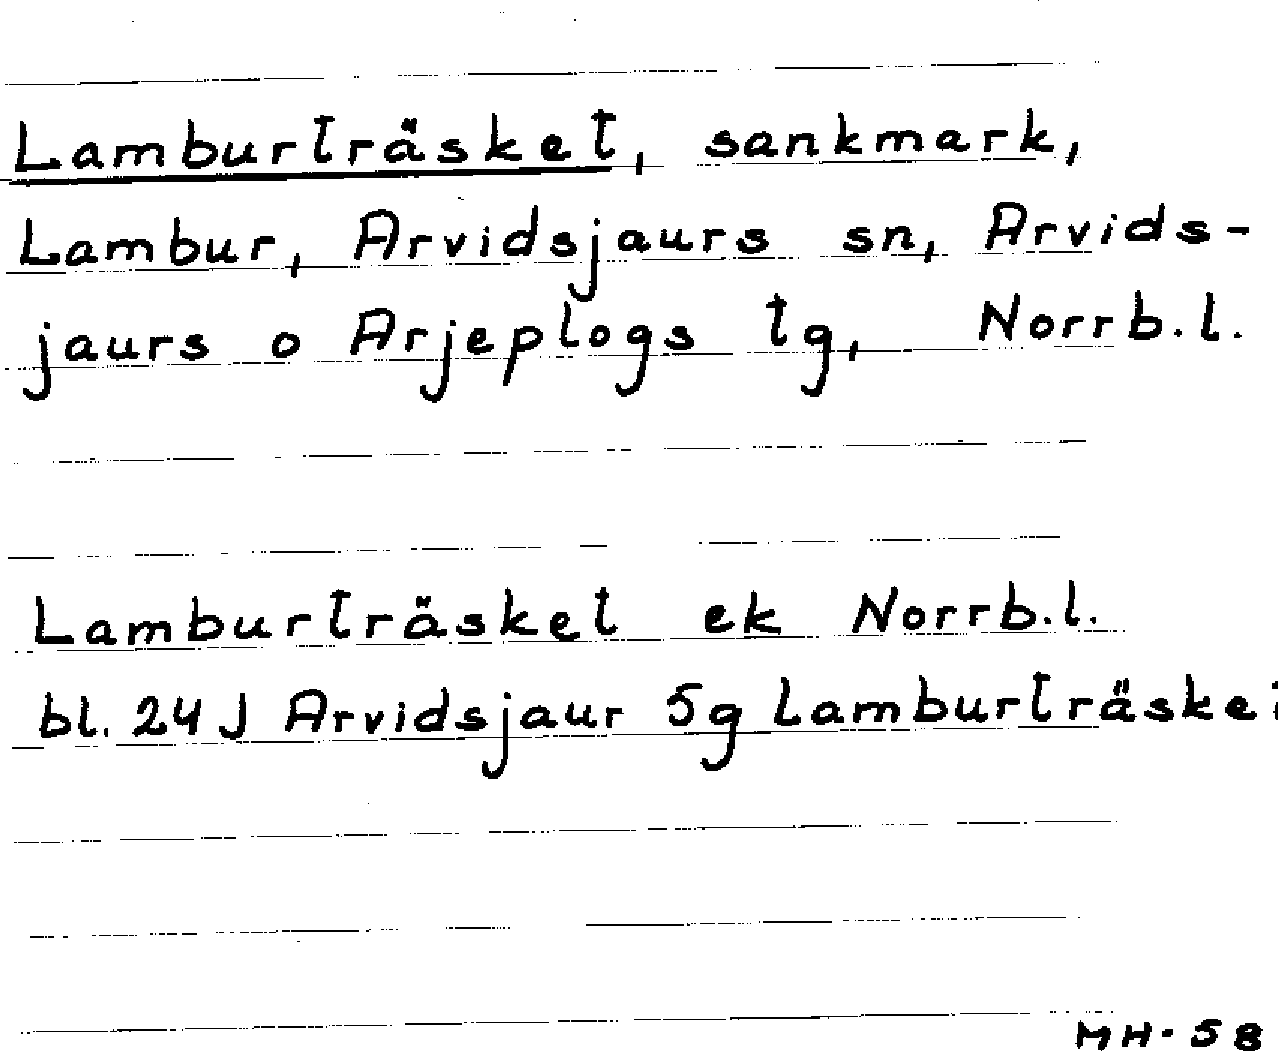 Lamburträsket, sankmark,
Lambur, Arvidsjaurs sn, Arvids-
jaurs o Arjeplogs tg, Norrb.l.
Lamburträsket ek Norrb.l.
bl. 24J Arvidsjaur 5g Lamburträsket
MH-58